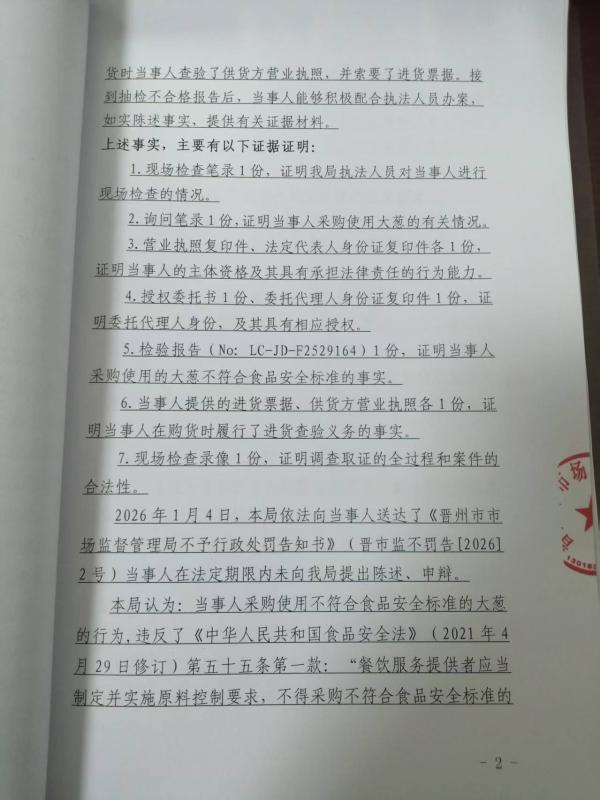 货时当事人查验了供货方营业执照，并索要了进货票据。接
到抽检不合格报告后，当事人能够积极配合执法人员办案，
如实陈述事实，提供有关证据材料。
上述事实，主要有以下证据证明：
1.现场检查笔录1份，证明我局执法人员对当事人进行
现场检查的情况。
2.询问笔录1份，证明当事人采购使用大葱的有关情况。
3.营业执照复印件、法定代表人身份证复印件各1份，
证明当事人的主体资格及其具有承担法律责任的行为能力。
4.授权委托书1份、委托代理人身份证复印件1份，证
明委托代理人身份，及其具有相应授权。
5.检验报告（No: LC-JD-F2529164）1份，证明当事人
采购使用的大葱不符合食品安全标准的事实。
6.当事人提供的进货票据、供货方营业执照各1份，证
明当事人在购货时履行了进货查验义务的事实。
7.现场检查录像1份，证明调查取证的全过程和案件的
合法性。
2026年1月4日，本局依法向当事人送达了《晋州市市
场监督管理局不予行政处罚告知书》（晋市监不罚告[2026]
2号）当事人在法定期限内未向我局提出陈述、申辩。
本局认为：当事人采购使用不符合食品安全标准的大葱
的行为,违反了《中华人民共和国食品安全法》（2021年4
月29日修订）第五十五条第一款：“餐饮服务提供者应当
制定并实施原料控制要求，不得采购不符合食品安全标准的
- 2 -